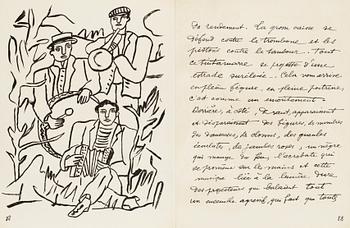 Do rendement. La grosse caisse se
défend contre le trombone et les
pistons contre le tambour. Tout
ce tintamarre se projette d'une
estrade surélevée. Cela vous arrive
en pleine figure, en pleine poitrine,
c'est comme un envoûtement.
Derrière, à côté, devant, apparaissent
et disparaissent des figures, des membres
des danseuses, des clowns, des gueules
écarlates, des jambes roses, un nègre
qui mange du feu, l'acrobate qui
se promène sur les mains et cette
musique liée à la lumière dure
des projecteurs qui balaient tout
un ensemble agressif, qui fait que toute
27
28